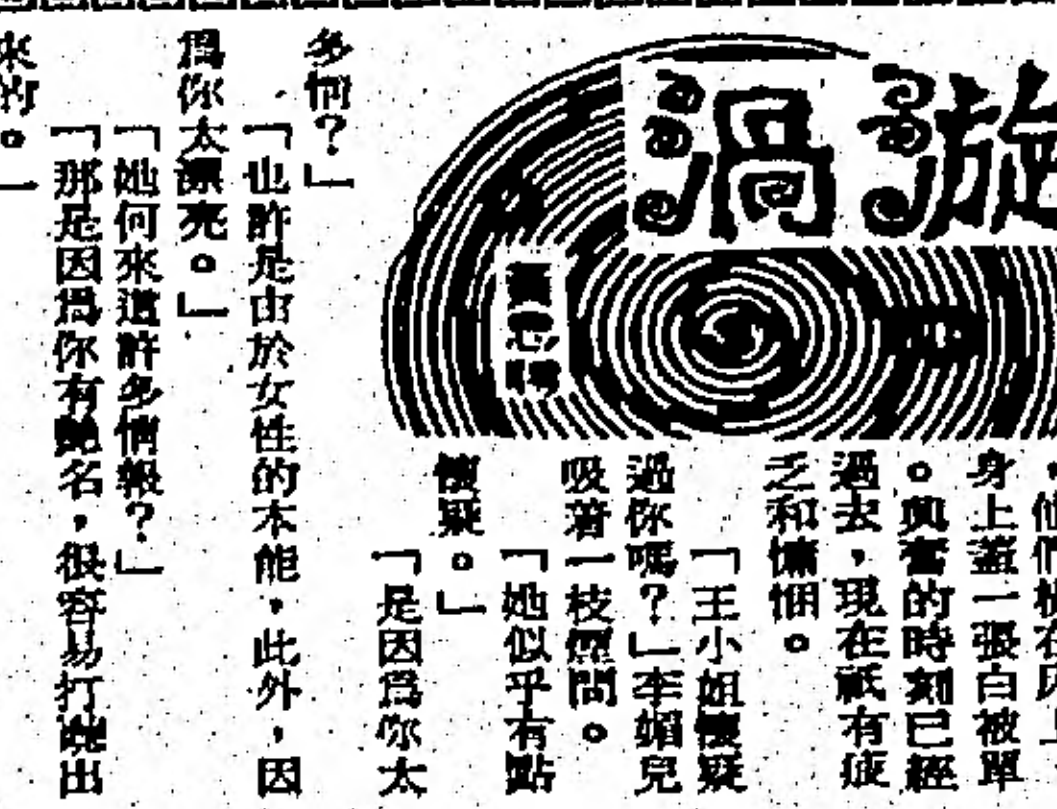 漩渦
他們
身上蓋一張白被單
。興奮的時刻已經
過去，現在祇有疲
乏和慵悃。
「王小姐懷疑
過你嗎？」李媚兒
吸着一枝煙問。
「她似乎有點
懷疑。」
「是因爲你太
多情？」
「也許是由於女性的本能，此外，因
爲你太漂亮。」
「她何來這許多情報？」
「那是因爲你有艷名，很容易打聽出
來的。」